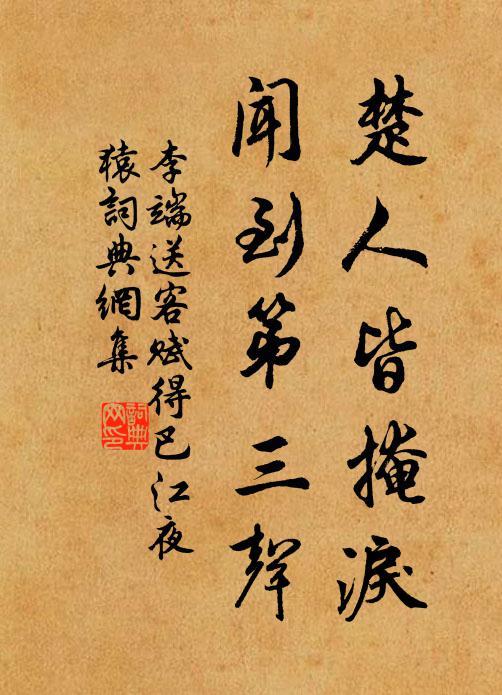 楚人皆掩淚
闻到第三聲
李端送客賦得巴江夜
猿詞典網集
詞典
网印